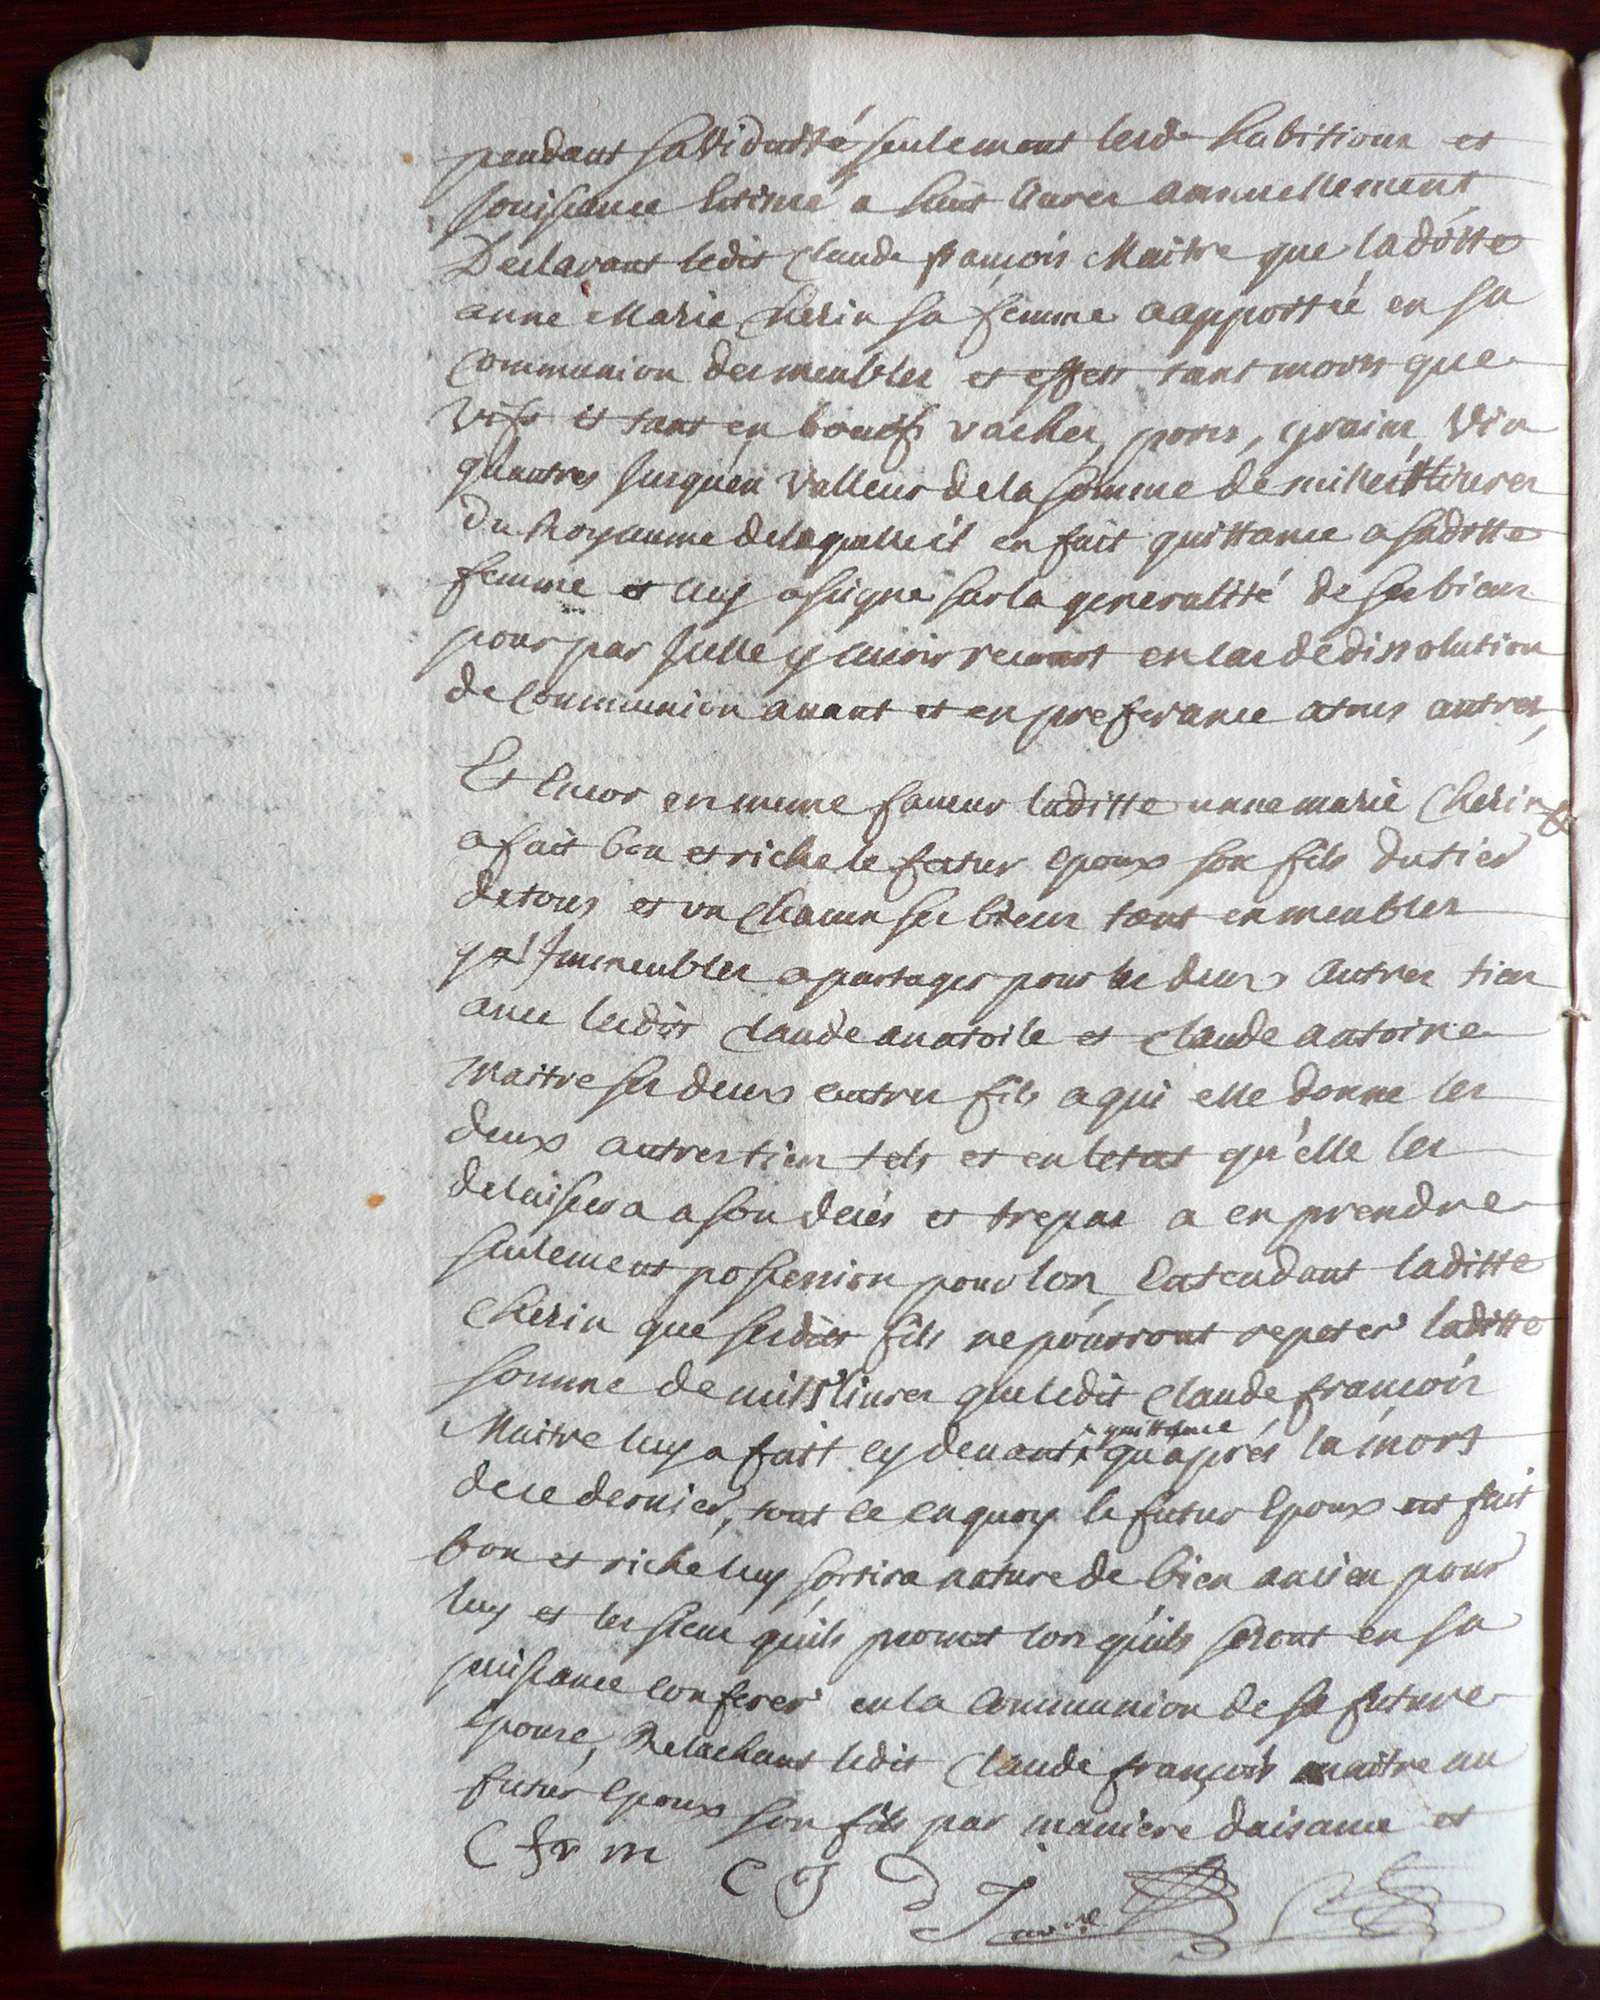 pendant sa Viduité seulement lesd. habitions et
jouissance Estimé a huit livres annuellement
Declarant ledit Claude françois Maitre que laditte
anne Marie Cherin sa femme a apporttée en sa
Communion des meubles et effets tant morts que
vifs et tant en boeufs vaches, porcs, graine, Vin
qu'autres jusqu'en Valleur de la somme de mille livres
du Royaume de laquelle il en fait quittance a saditte
femme et luy asigne sur la generalité de ses biens
pour par Jcelle y avoir recours en cas de dissolution
de Communion avant et en preferance a tous autres,
Et Encor en meme faveur laditte anne marie Cherin
a fait bon et riche le futur Epoux son fils du tier
de tous et un chacun ses biens tant en meubles
qu'Jmmeubles a partager pour les deux autres tier
avec lesdits Claude anatoile et Claude antoine
Maitre ses deux autres fils a qui elle donne les
deux autres tiers tels et en letat qu'elle les
delaissera a son deces et trepas a en prendre
seulement possession pour lors, Entendant laditte
Cherin que sesdits fils ne pourront repeter laditte
somme de mille livres que ledit Claude françois
Maitre luy a fait cy devant quittance qu'aprés la mort
de ce dernier, tout ce enquoy le futur Epoux est fait
bon et riche luy sortira nature de bien ancien pour
luy et les siens qu'ils promet lors qu'ils seront en sa
puissance conferer en la Communion de sa future
Epouse, Relachant ledit Claude françois maitre au
futur Epoux son fils par maniere daisance et
C fr m C J D J